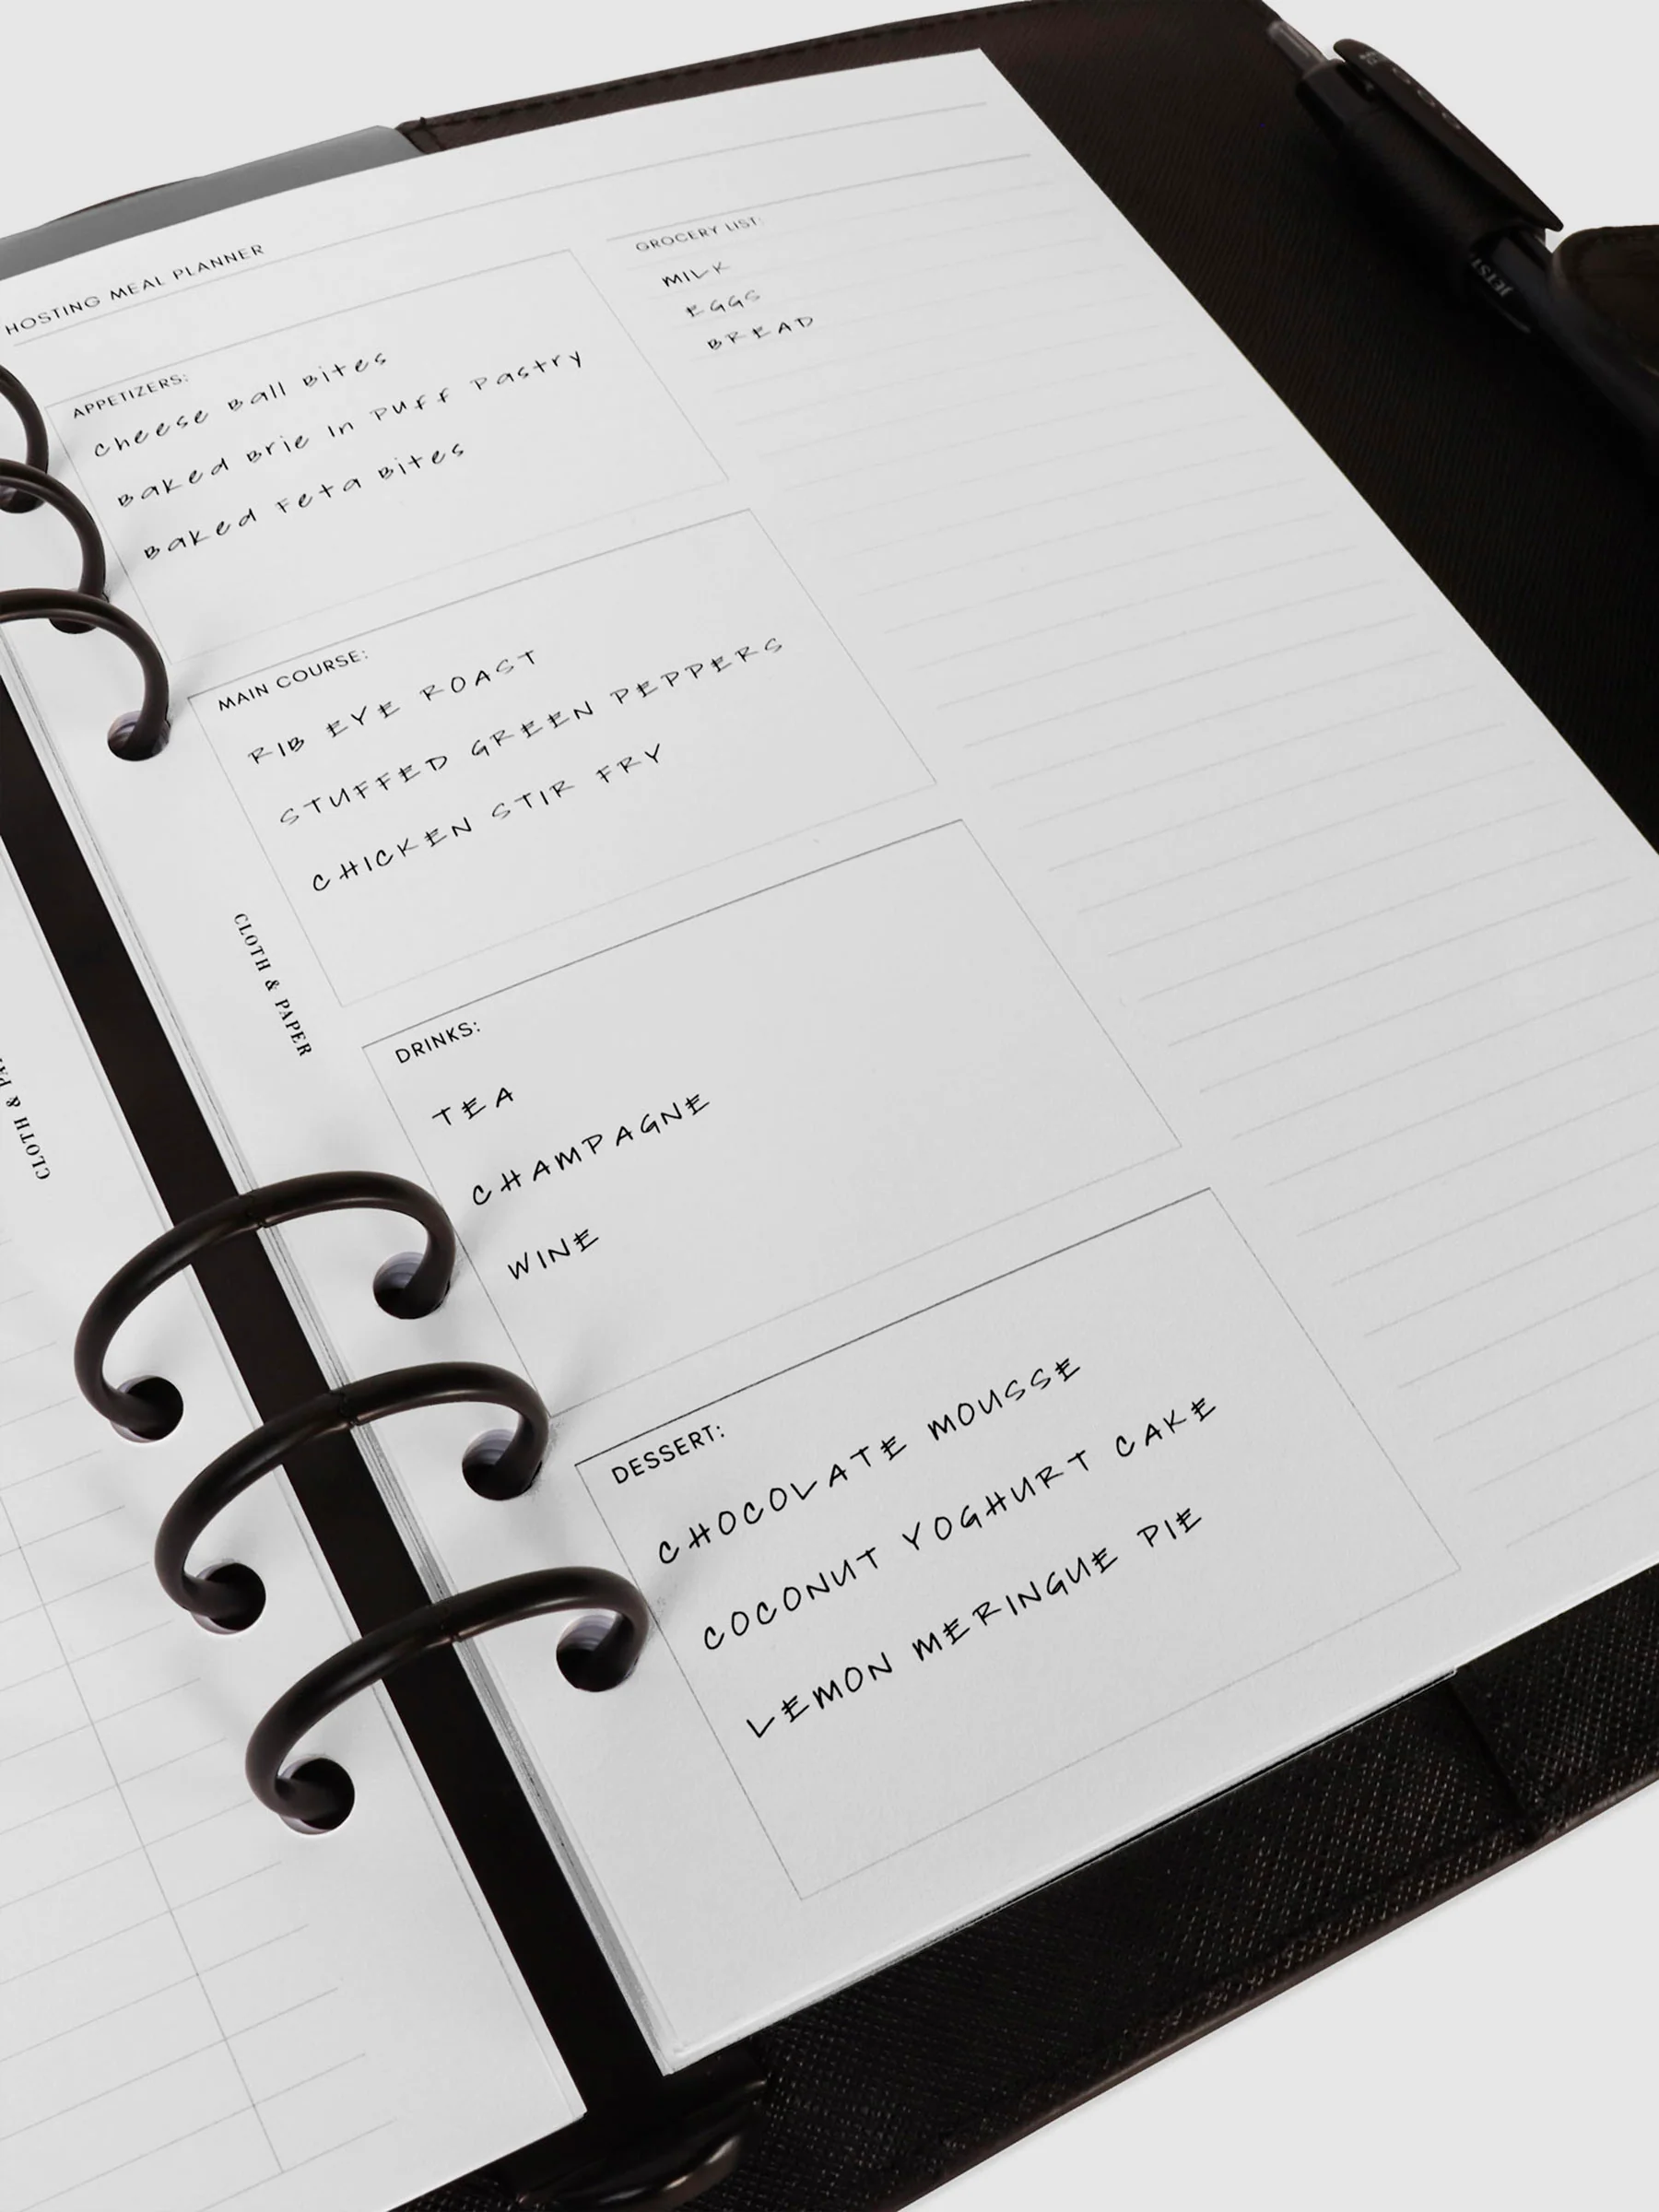 HOSTING MEAL PLANNER
APPETIZERS:
Cheese Ball Bites
Baked Brie In Puff Pastry
Baked Feta Bites
MAIN COURSE:
RIB EYE ROAST
STUFFED GREEN PEPPERS
CHICKEN STIR FRY
DRINKS:
TEA
CHAMPAGNE
WINE
DESSERT:
CHOCOLATE MOUSSE
COCONUT YOGHURT CAKE
LEMON MERINGUE PIE
GROCERY LIST:
MILK
EGGS
BREAD
CLOTH & PAPER
CLOTH & PA
JETST